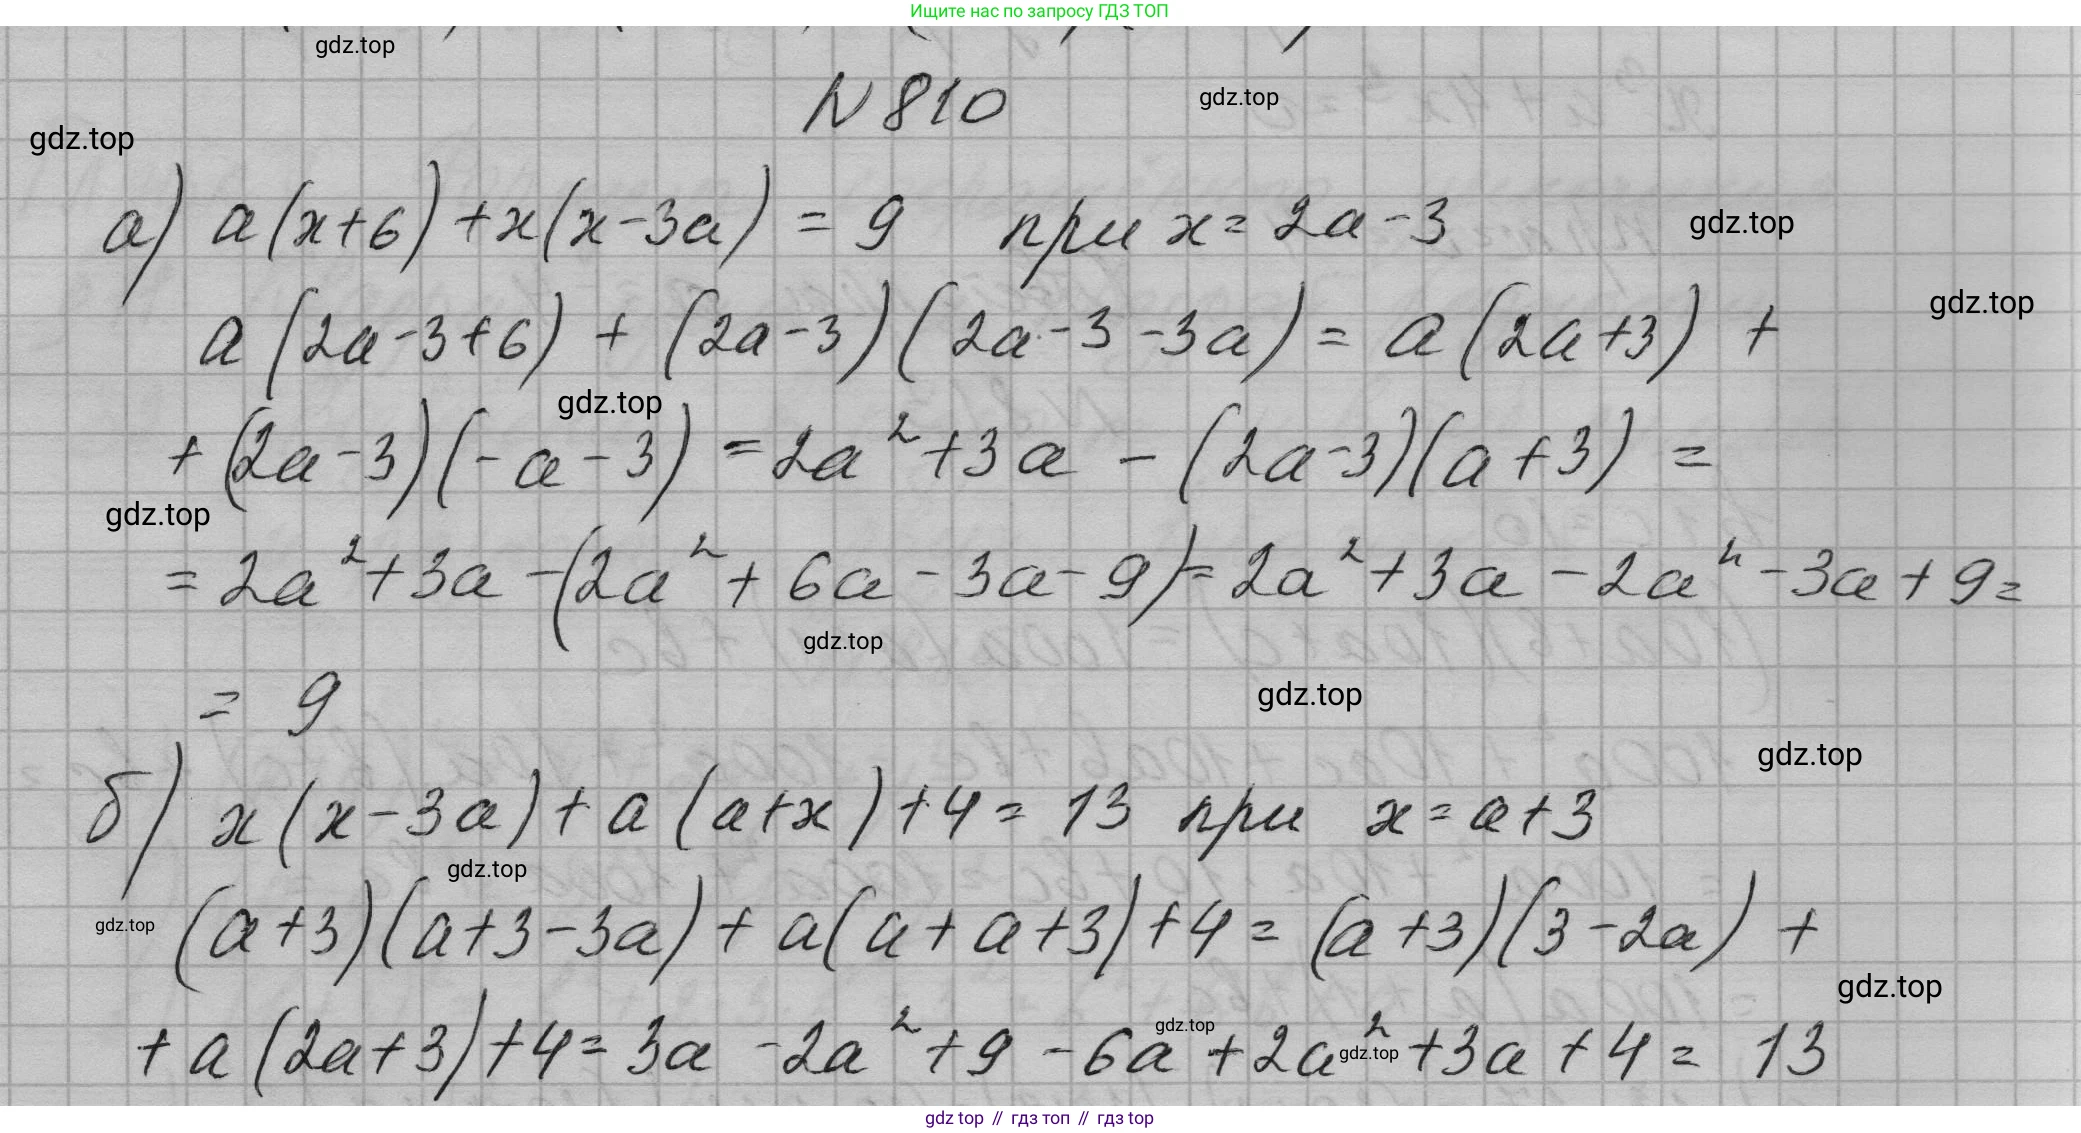 Ищите нас по запросу ГДЗ ТОП
gdz.top
N 810
gdz.top
gdz.top
а) a(x+6)+x(x-3a) = 9 при x = 2a-3
gdz.top
gdz.top
a(2a-3+6) + (2a-3)(2a-3-3a) = a(2a+3) +
gdz.top
+ (2a-3)(-a-3) = 2a²+3a - (2a-3)(a+3) =
gdz.top
= 2a²+3a-(2a²+6a-3a-9) = 2a²+3a-2a²-3a+9=
gdz.top
= 9
gdz.top
gdz.top
б) x(x-3a)+a(a+x)+4= 13 при x=a+3
gdz.top
gdz.top
(a+3)(a+3-3a)+a(a+a+3)+4= (a+3)(3-2a) +
gdz.top
+a(2a+3)+4=3a-2a²+9-6a+2a²+3a+4= 13
gdz.top
gdz.top
gdz top // гдз топ // гдз top